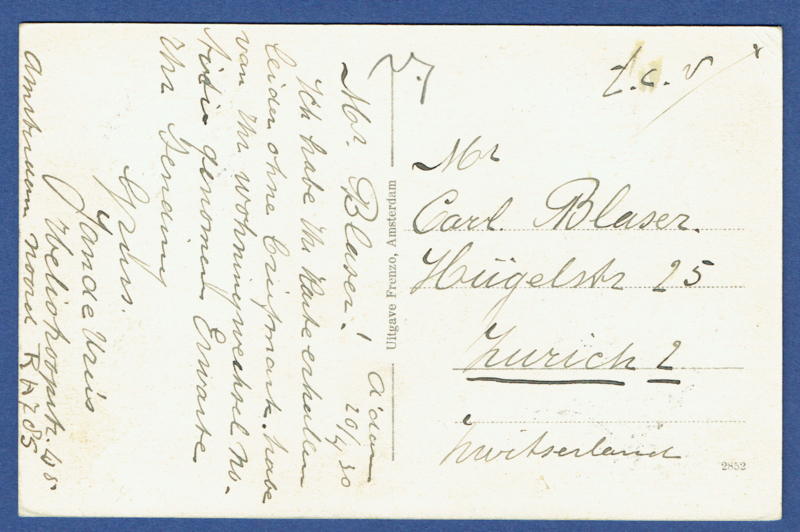 A'dam
20/4 30
Mr. Blaser!
Ich habe Ihr Karte erhalen
leider ohne briefmark. habe
van Ihr wohningwechsel No-
titie genomen Erwarte
Ihr Sending
Grüss.
Jan de Vries
Heliotroopstr. 45
Amsterdam Noord RH705
Uitgave Frenzo, Amsterdam
t.c.v
Mr
Carl Blaser.
Hügelstr 25
Zurich 2
Zwitserland
2852